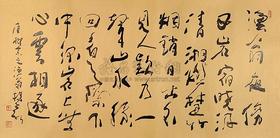 漁翁夜傍
西岩宿曉汲
清湘燃楚竹
烟銷日出不
見人欸乃一
聲山水綠
回看天際下
中流岩上無
心雲相逐
唐柳宗元